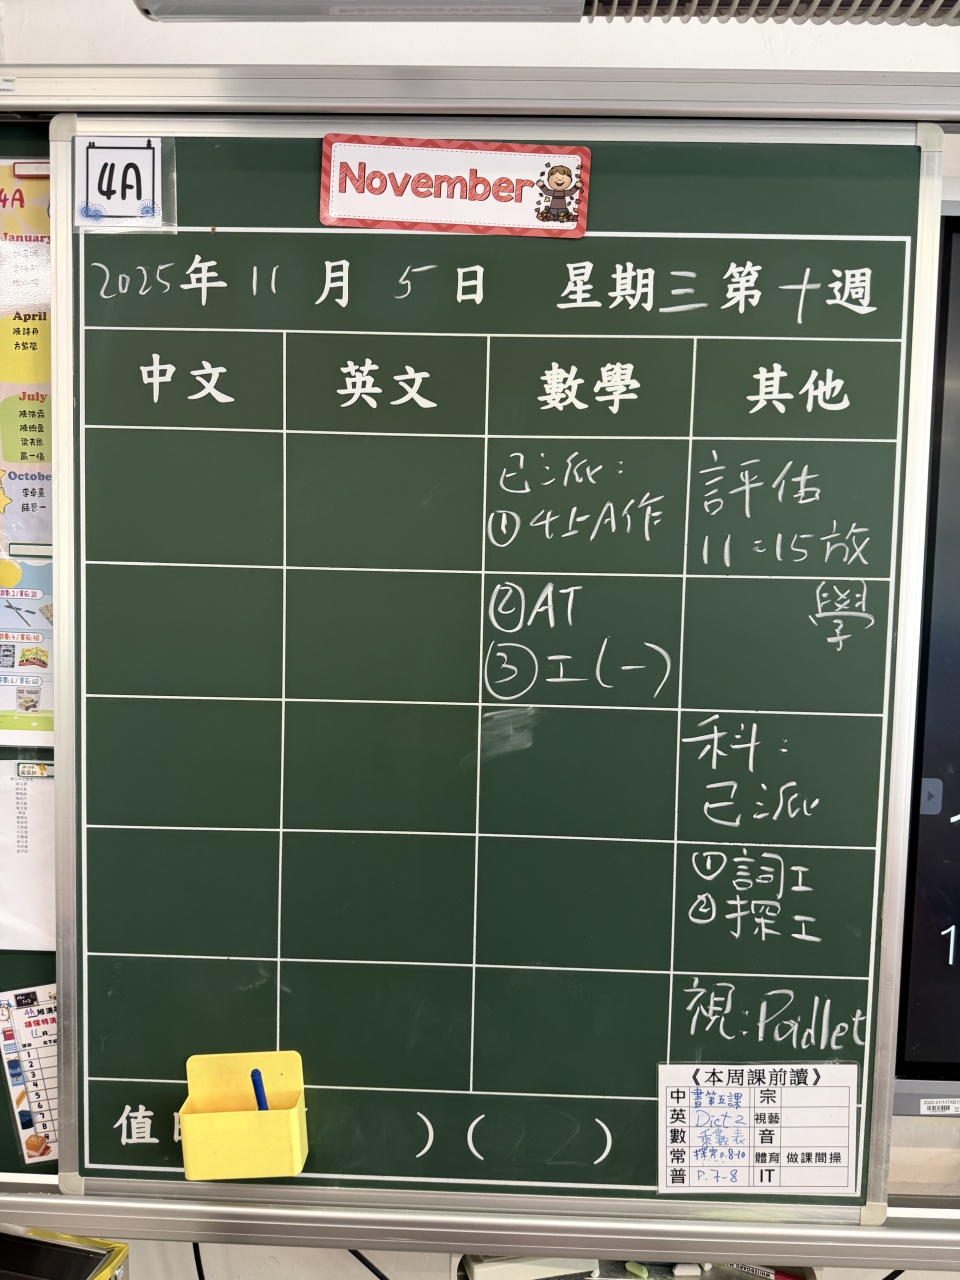 4A
November
2025年 11 月 5 日 星期三第十週
中文 英文 數學 其他
已派：
①4上A作
②AT
③工(一)
評估
11:15放
學
科：
已派
①詞工
②探工
視：Padlet
值
( )
《本周課前讀》
中 書第五課 宗
英 Dict 2 視藝
數 乘數表 音
常 探究p.8-10 體育 做課間操
普 P.7-8 IT
4A
January
April
陳詩丹
July
October
李卓熹
4A 班
11
1
2
3
4
5
6
7
8
9